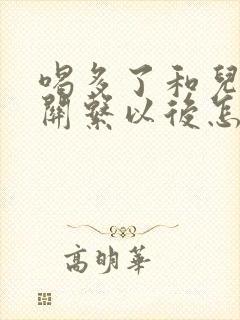 喝多了和兒
關繫以後怎
高明華